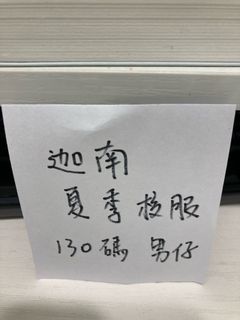 迦南
夏季校服
130碼 男仔